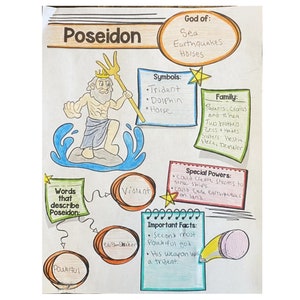 Poseidon
God of:
Sea
Earthquakes
Horses
Symbols:
• Trident
• Dolphin
• Horse
Family:
Parents: Cronus
and Rhea
Two brothers
Zeus + Hades
Special Powers:
• Could create storms to
sink ships
• Could
land
Words
that
describe
Poseidon:
Violent
Powerful
Important Facts:
• Second most
Powerful God
• His weapon was
a trident